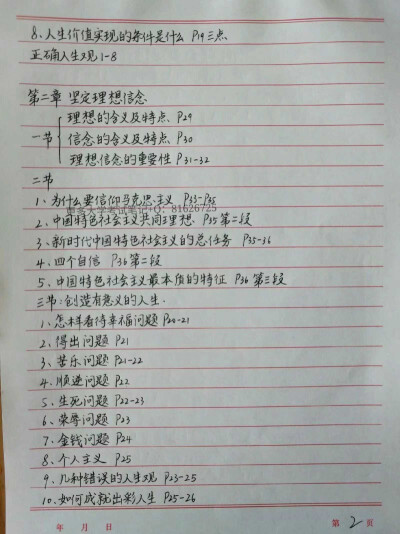 8、人生价值实现的条件是什么 P19三点
正确人生观1-8
第二章 坚定理想信念
理想的含义及特点、P29
一节 信念的含义及特点、P30
理想信念的重要性 P31-32
二节
1、为什么要信仰马克思主义 P33-P35
2、中国特色社会主义共同理想、P35第二段
3、新时代中国特色社会主义的总任务 P35-36
4、四个自信 P36第二段
5、中国特色社会主义最本质的特征 P36第三段
三节:创造有意义的人生.
1、怎样看待幸福问题 P20-21
2、得出问题 P21
3、苦乐问题 P21-22
4、顺逆问题 P22
5、生死问题 P22-23
6、荣辱问题 P23
7、金钱问题 P24
8、个人主义 P25
9、几种错误的人生观 P23-25
10、如何成就出彩人生 P25-26
年 月 日 第 2 页